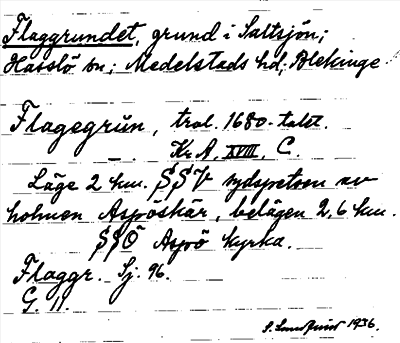 Flaggrundet, grund i Saltsjön;
Hasslö sn; Medelstads hd; Blekinge
Flagegrün, trol. 1680-talet.
Kr. A, XVIII, C.
Läge 2 km. SSV sydspetsen av
holmen Aspöskär, belägen 2,6 km.
SSO Aspö kyrka.
Flaggr. Sj. 96.
G. 11.
1936.